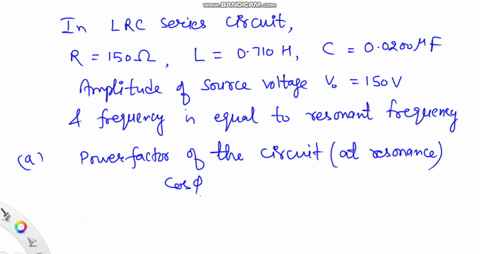 WWW.BANDICAM.COM
In LRC series circuit,
R = 150Ω, L = 0.710 H, C = 0.0200 μF
Amplitude of source voltage V₀ = 150 V
& frequency is equal to resonant frequency
(a) Power factor of the circuit (at resonance)
cos ϕ